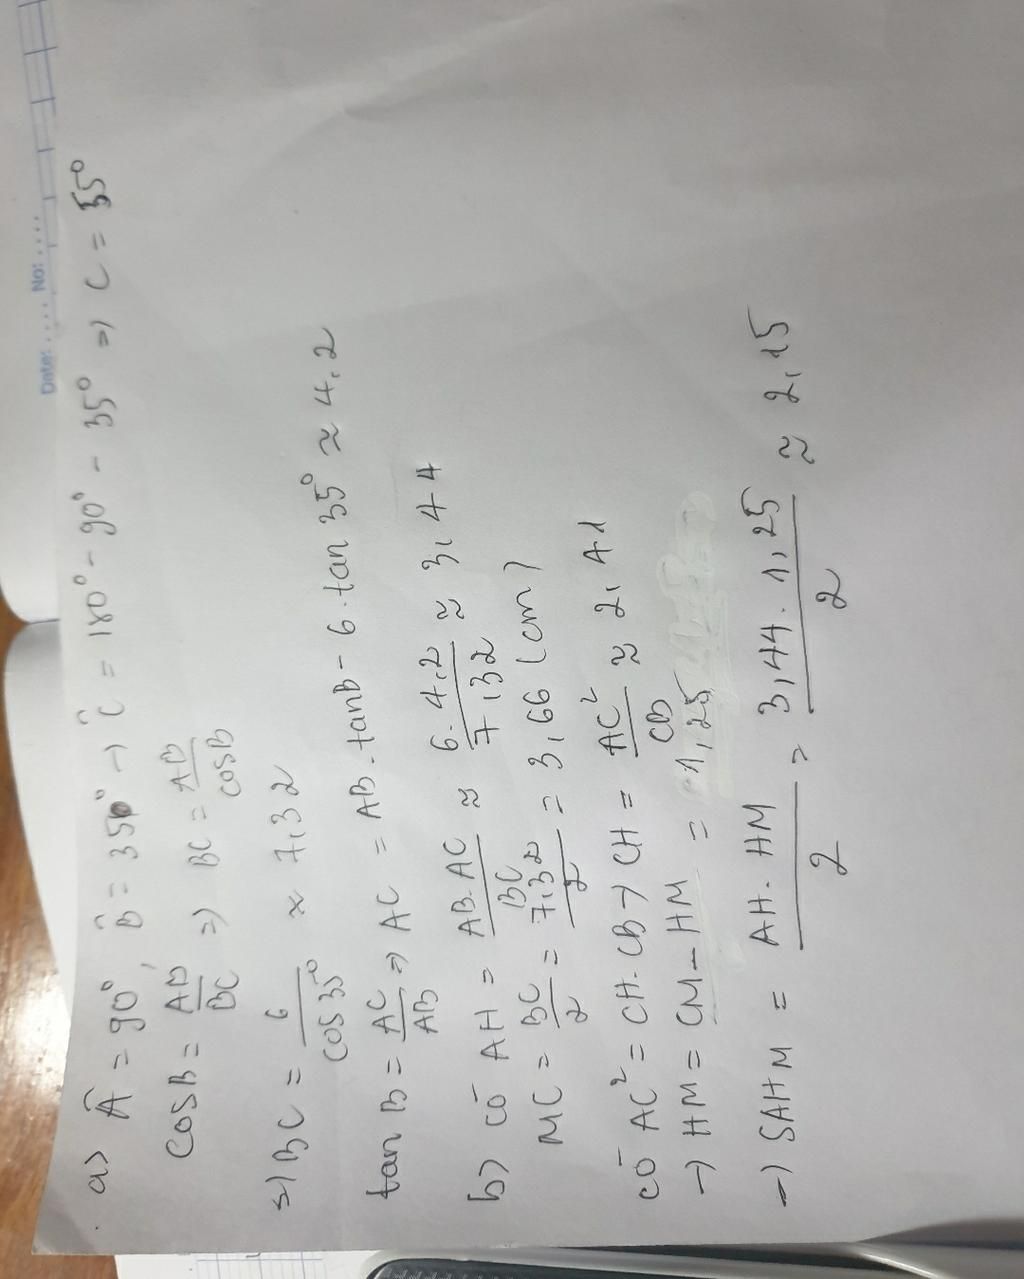 Date: .... No: ....
a) Â = 90°, B̂ = 35° → Ĉ = 180° - 90° - 35° => C = 55°
cosB = AB/BC => BC = AB/cosB
=> BC = 6/cos35° ≈ 7,32
tan B = AC/AB => AC = AB.tanB - 6.tan 35° ≈ 4,2
b) có AH = AB.AC/BC ≈ 6.4,2/7,32 ≈ 3,44
MC = BC/2 = 7,32/2 = 3,66 (cm)
có AC² = CH.CB → CH = AC²/CB ≈ 2,41
→ HM = CM - HM = 1,25
→ SAHM = AH.HM/2 = 3,44.1,25/2 ≈ 2,15